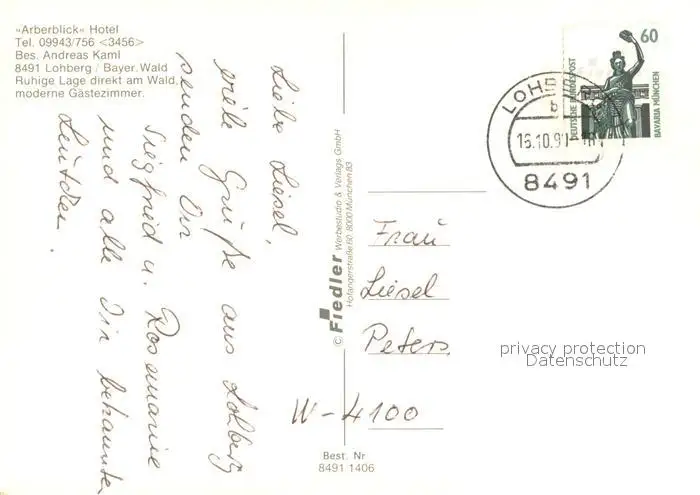 »Arberblick« Hotel
Tel. 09943/756 <3456>
Bes. Andreas Kaml
8491 Lohberg / Bayer. Wald
Ruhige Lage direkt am Wald,
moderne Gästezimmer.
Liebe Liesel,
viele Grüße aus Lohberg
senden Dir
Siegfried u. Rosemarie
und alle Dir bekannten
Leutchen.
© Fiedler Werbestudio & Verlags GmbH
Hofangerstraße 60 8000 München 83
60
DEUTSCHE BUNDESPOST
BAVARIA MÜNCHEN
16.10.91
8491
Frau
Liesel
Peters
W-4100
privacy protection
Datenschutz
Best. Nr
8491 1406